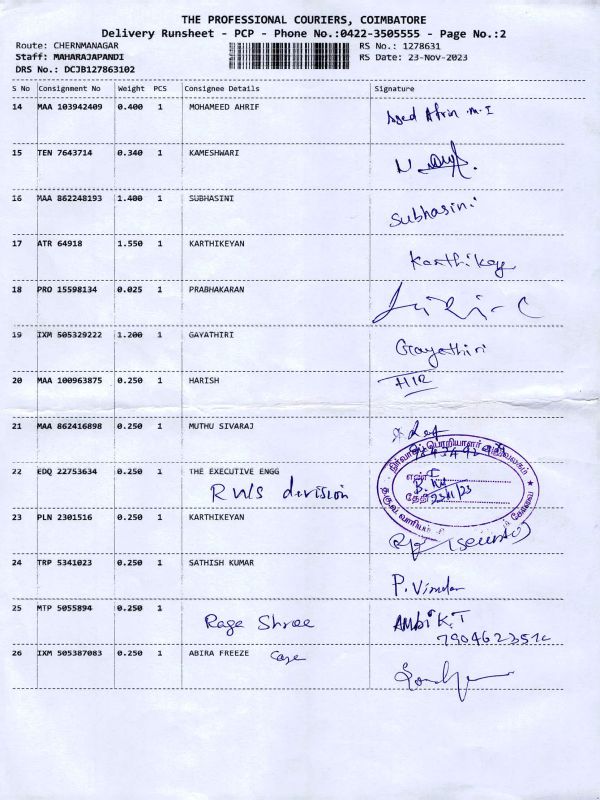 THE PROFESSIONAL COURIERS, COIMBATORE
Delivery Runsheet - PCP - Phone No.:0422-3505555 - Page No.:2
Route: CHERNMANAGAR RS No.: 1278631
Staff: MAHARAJAPANDI RS Date: 23-Nov-2023
DRS No.: DCJB127863102
S No Consignment No Weight PCS Consignee Details Signature
14 MAA 103942409 0.400 1 MOHAMEED AHRIF
15 TEN 7643714 0.340 1 KAMESHWARI
16 MAA 862248193 1.400 1 SUBHASINI Subhasini
17 ATR 64918 1.550 1 KARTHIKEYAN Karthikey
18 PRO 15598134 0.025 1 PRABHAKARAN
19 IXM 505329222 1.200 1 GAYATHIRI Gayathiri
20 MAA 100963875 0.250 1 HARISH HIR
21 MAA 862416898 0.250 1 MUTHU SIVARAJ
22 EDQ 22753634 0.250 1 THE EXECUTIVE ENGG
RWS division
எண்
தேதி 23/11/23
23 PLN 2301516 0.250 1 KARTHIKEYAN
24 TRP 5341023 0.250 1 SATHISH KUMAR
P. Vimalan
25 MTP 5055894 0.250 1
Rage Shree AMBIK.T
26 IXM 505387083 0.250 1 ABIRA FREEZE Care